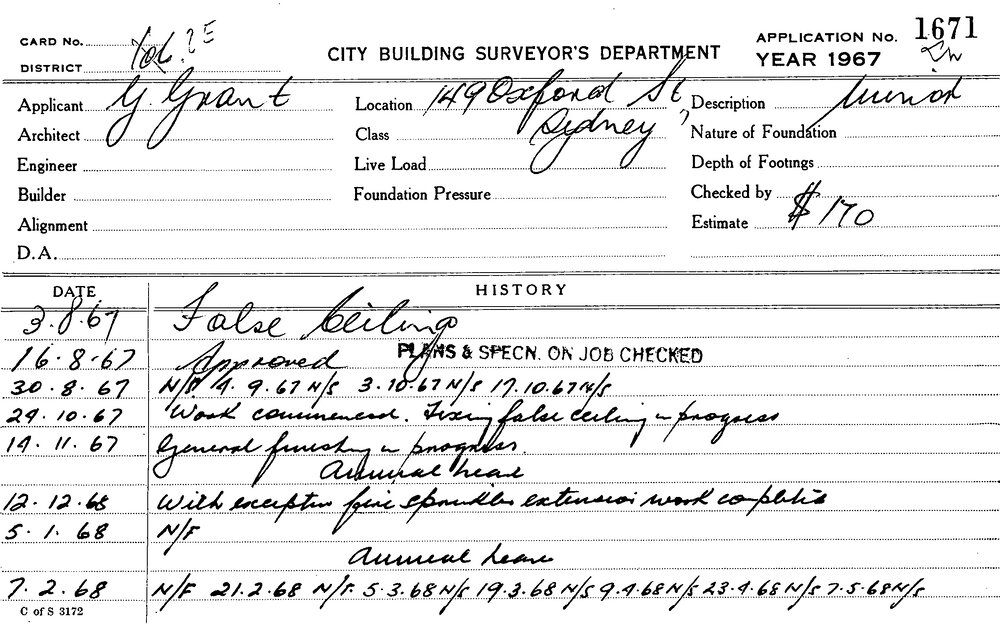 CARD No.
APPLICATION No. 1671
CITY BUILDING SURVEYOR'S DEPARTMENT
DISTRICT
YEAR 1967
Applicant G. Grant Location 149 Oxford St, Description Minor
Architect Class Sydney Nature of Foundation
Engineer Live Load Depth of Footings
Builder Foundation Pressure Checked by
Alignment Estimate $170
D.A.
DATE HISTORY
3.8.67 False Ceiling
16.8.67 Approved PLANS & SPECN. ON JOB CHECKED
30.8.67 N/S 4.9.67 N/S 3.10.67 N/S 17.10.67 N/S
24.10.67 Work commenced. Fixing false ceiling in progress
14.11.67 General finishing in progress.
Annual leave
12.12.68 With exception fire sprinkler extension work complete
5.1.68 N/F
Annual leave
7.2.68 N/F 21.2.68 N/F 5.3.68 N/S 19.3.68 N/S 9.4.68 N/S 23.4.68 N/S 7.5.68 N/S
C of S 3172